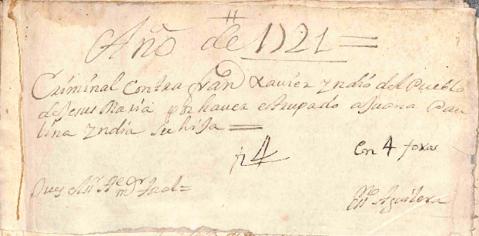 Año de 1721
Criminal Contra Fran Xavier yndio del Pueblo
de Jesus Maria por haver estrupado a Juana Pau
lina yndia su hija
N 4 Con 4 foxas
Juez
Aguilera